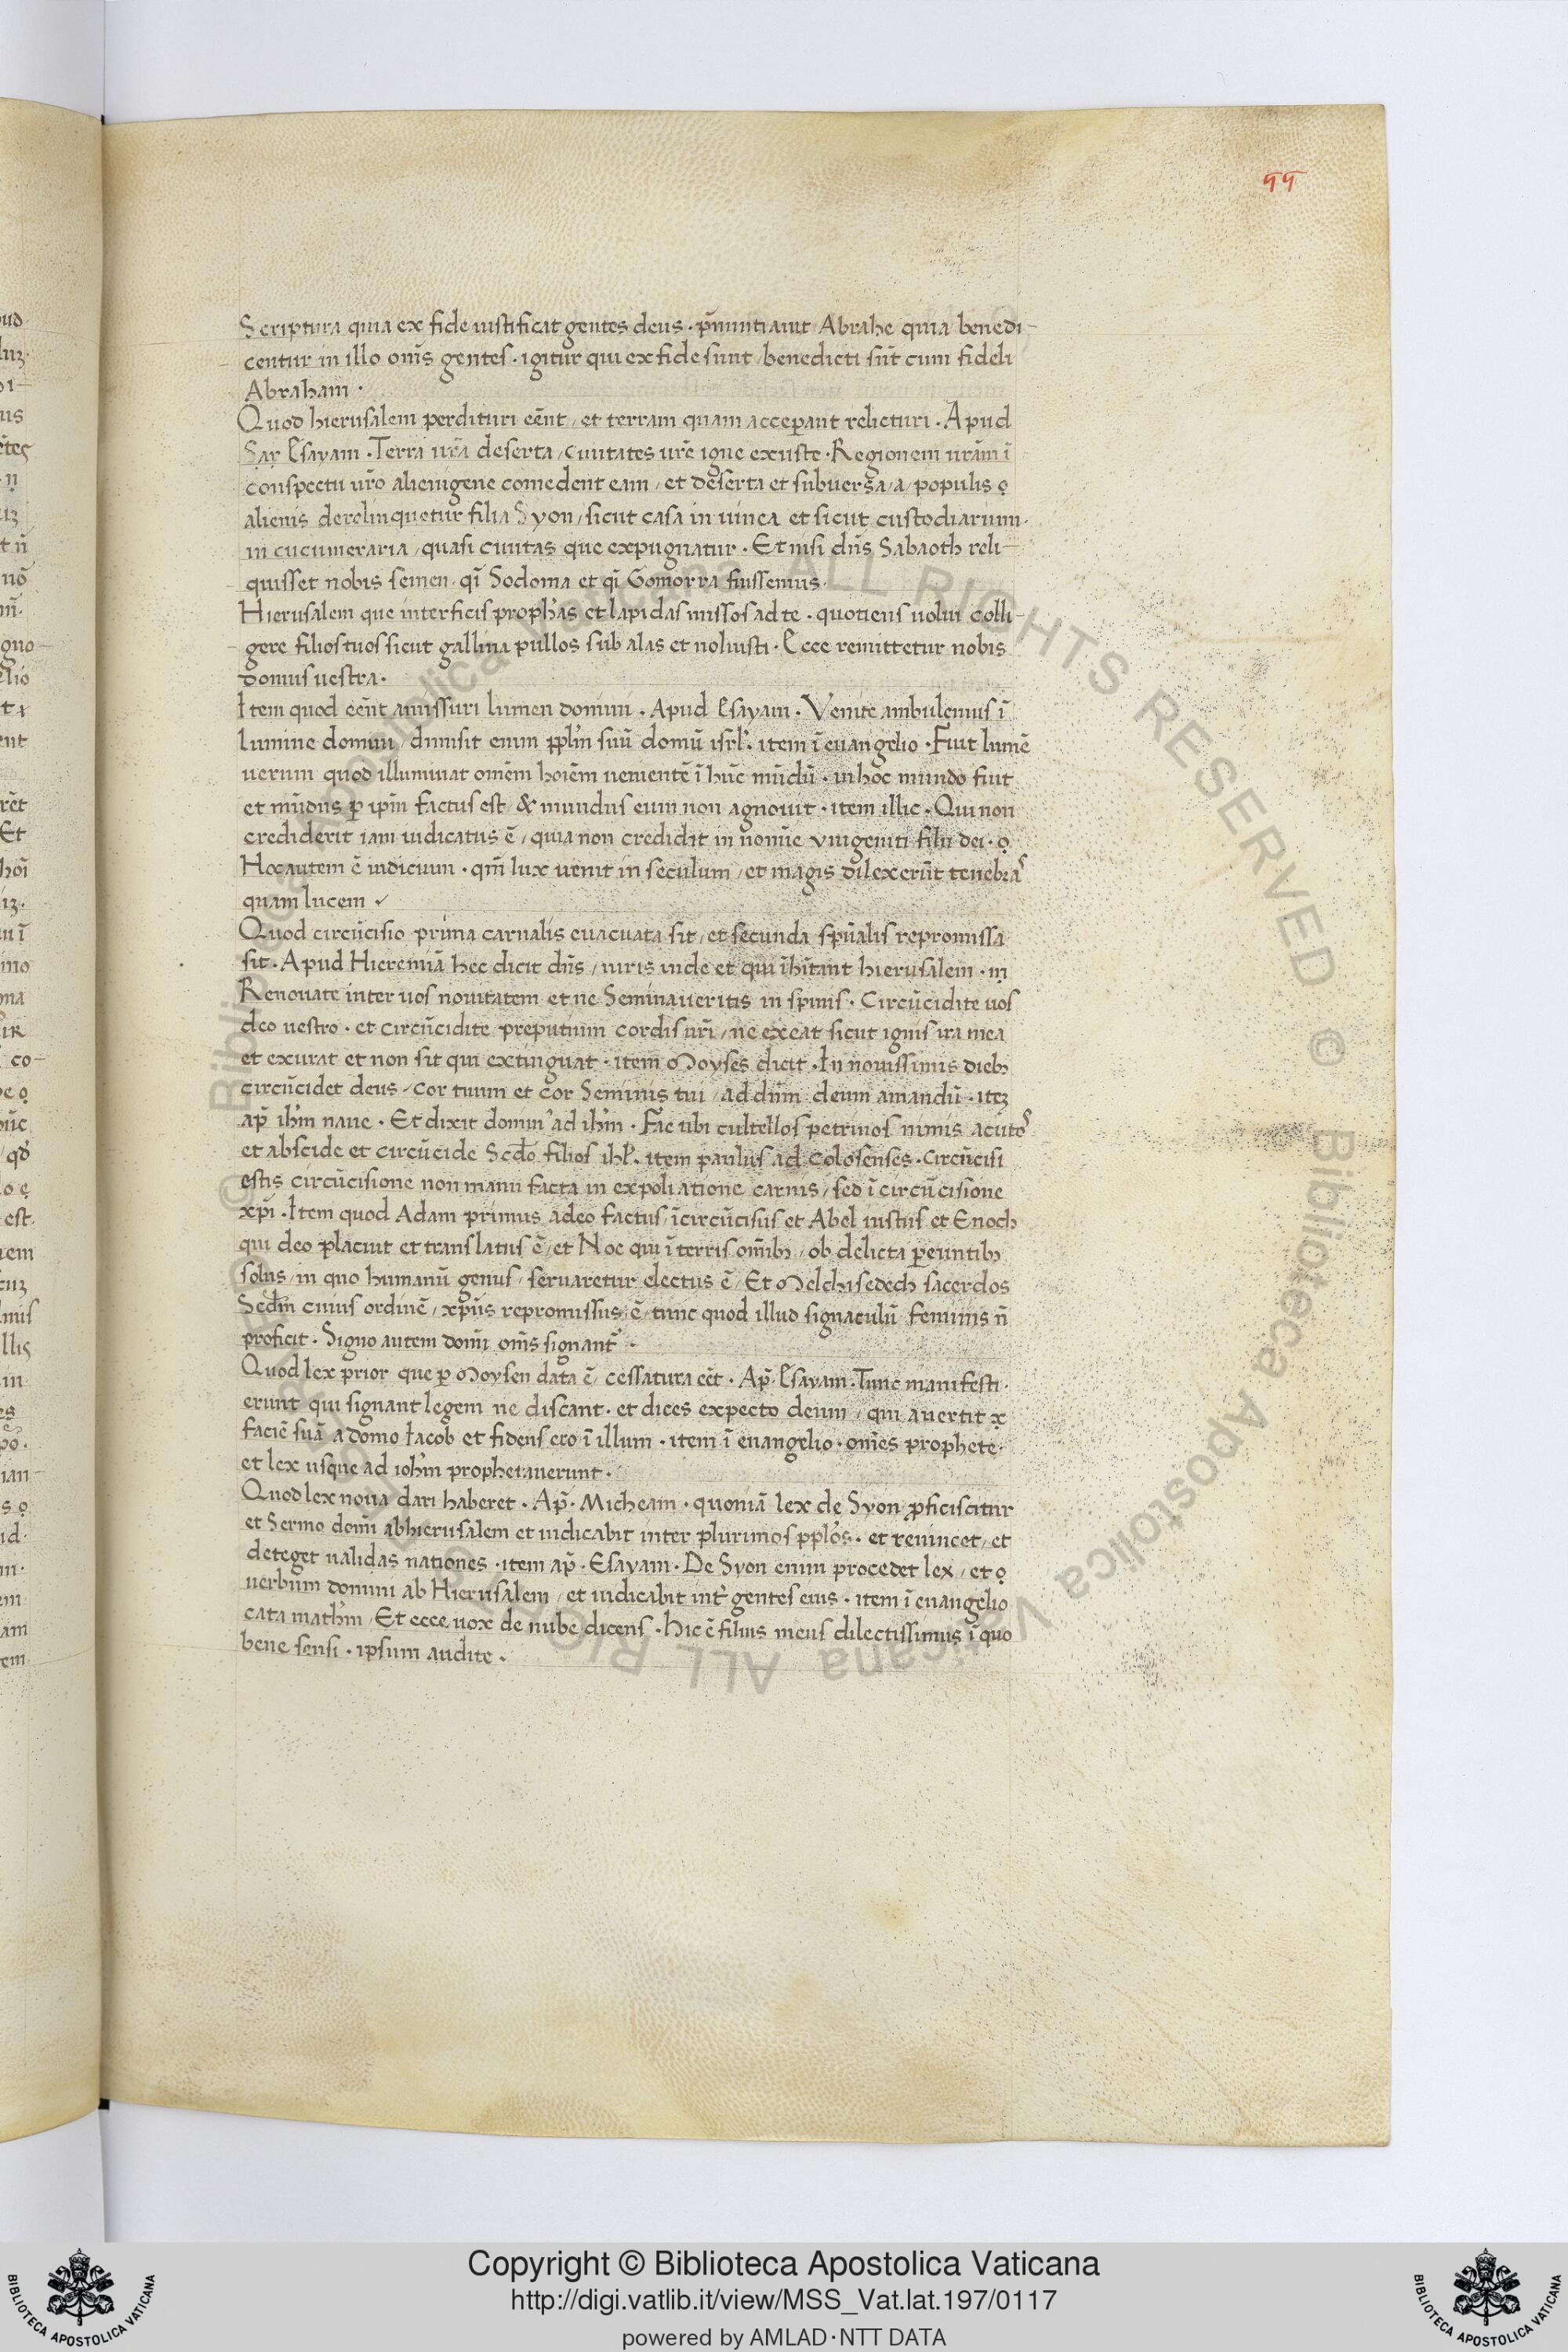 55
Scriptura quia ex fide iustificat gentes deus · p̄nuntiauit Abrahe quia benedi-
centur in illo om̄s gentes · igitur qui ex fide sunt / benedicti sūt cum fideli
Abraham ·
Quod hierusalem perdituri eēnt / et terram quam acceperant relicturi · Apud
Say Esayam · Terra ur̄a deserta / ciuitates ur̄e igne exuste · Regionem ur̄am ī
conspectu ur̄o alienigene comedent eam / et deserta et subuersa / a / populis
alienis derelinquetur filia Syon / sicut casa in uinea et sicut custodiarium
in cucumeraria / quasi ciuitas que expugnatur · Et nisi dn̄s Sabaoth reli-
quisset nobis semen · qī Sodoma et qī Gomorra fuissemus ·
Hierusalem que interficis proph'as et lapidas missos ad te · quotiens uolui colli-
gere filios tuos sicut gallina pullos sub alas et noluisti · Ecce remittetur nobis
domus uestra ·
Item quod eēnt amissuri lumen domini · Apud Esayam · Venite ambulemus ī
lumine domini / dimisit enim pplm̄ suū domū isrl' · item ī euangelio · Fuit lumē
uerum quod illuminat omēm hoiēm uenientē ī hūc mūdū · in hoc mundo fuit
et mūdus ꝑ ipm̄ factus est & mundus eum non agnouit · item illic · Qui non
crediderit iam iudicatus ē / quia non credidit in nomīe vnigeniti filii dei ·
Hoc autem ē iudicium · qm̄ lux uenit in seculum / et magis dilexerūt tenebras
quam lucem
Quod circūcisio prima carnalis euacuata sit / et secunda spūalis repromissa
sit · Apud Hieremiā hec dicit dn̄s / uiris iude et qui īhītant hierusalem ·
Renouate inter uos nouitatem et ne Seminaueritis in spinis · Circūcidite uos
deo uestro · et circūcidite preputium cordis ur̄i / ne exeat sicut ignis ira mea
et exurat et non sit qui extinguat · item Moyses dicit · In nouissimis dieb;
circūcidet deus / cor tuum et cor Seminis tui / ad dn̄m deum amandū · iteꝫ
ap̄ ih'm naue · Et dixit domin' ad ih'm · Fac tibi cultellos petrinos nimis acutos
et abscide et circūcide Scdo filios ihl' · item paulus ad colosenses · Circūcisi
estis circūcisione non manu facta in expoliatione carnis / sed ī circūcisione
xp̄i · Item quod Adam primus adeo factus / īcircūcisus et Abel iustus et Enoch
qui deo placuit et translatus ē / et Noe qui ī terris omīb; / ob delicta ꝑeuntib;
solus / in quo humanū genus / seruaretur electus ē / Et Melchisedech sacerdos
Scdm̄ cuius ordinē / xp̄us repromissus ē / tunc quod illud signaculū feminis n̄
proficit · Signo autem domī om̄s signant' ·
Quod lex prior que ꝑ Moysen data ē / cessatura eēt · Ap̄ Esayam · Tunc manifesti
erunt qui signant legem ne discant · et dices expecto deum / qui auertit
faciē suā a domo Iacob et fidens ero ī illum · item ī euangelio · omēs prophete
et lex usque ad ioh'm prophetauerunt ·
Quod lex noua dari haberet · Ap̄ · Micheam · quoniā lex de Syon ꝓficiscitur
et Sermo domī ab hierusalem et iudicabit inter plurimos pplōs · et reuincet / et
deteget ualidas nationes · item ap̄ · Esayam · De Syon enim procedet lex / et
uerbum domini ab Hierusalem / et iudicabit int' gentes eius · item ī euangelio
cata math'm / Et ecce uox de nube dicens · Hic ē filius meus dilectissimus ī quo
bene sensi · ipsum audite ·
© Biblioteca Apostolica Vaticana ALL RIGHTS RESERVED
© Biblioteca Apostolica Vaticana ALL RIGHTS RESERVED
Copyright © Biblioteca Apostolica Vaticana
http://digi.vatlib.it/view/MSS_Vat.lat.197/0117
powered by AMLAD·NTT DATA
BIBLIOTECA APOSTOLICA VATICANA
BIBLIOTECA APOSTOLICA VATICANA